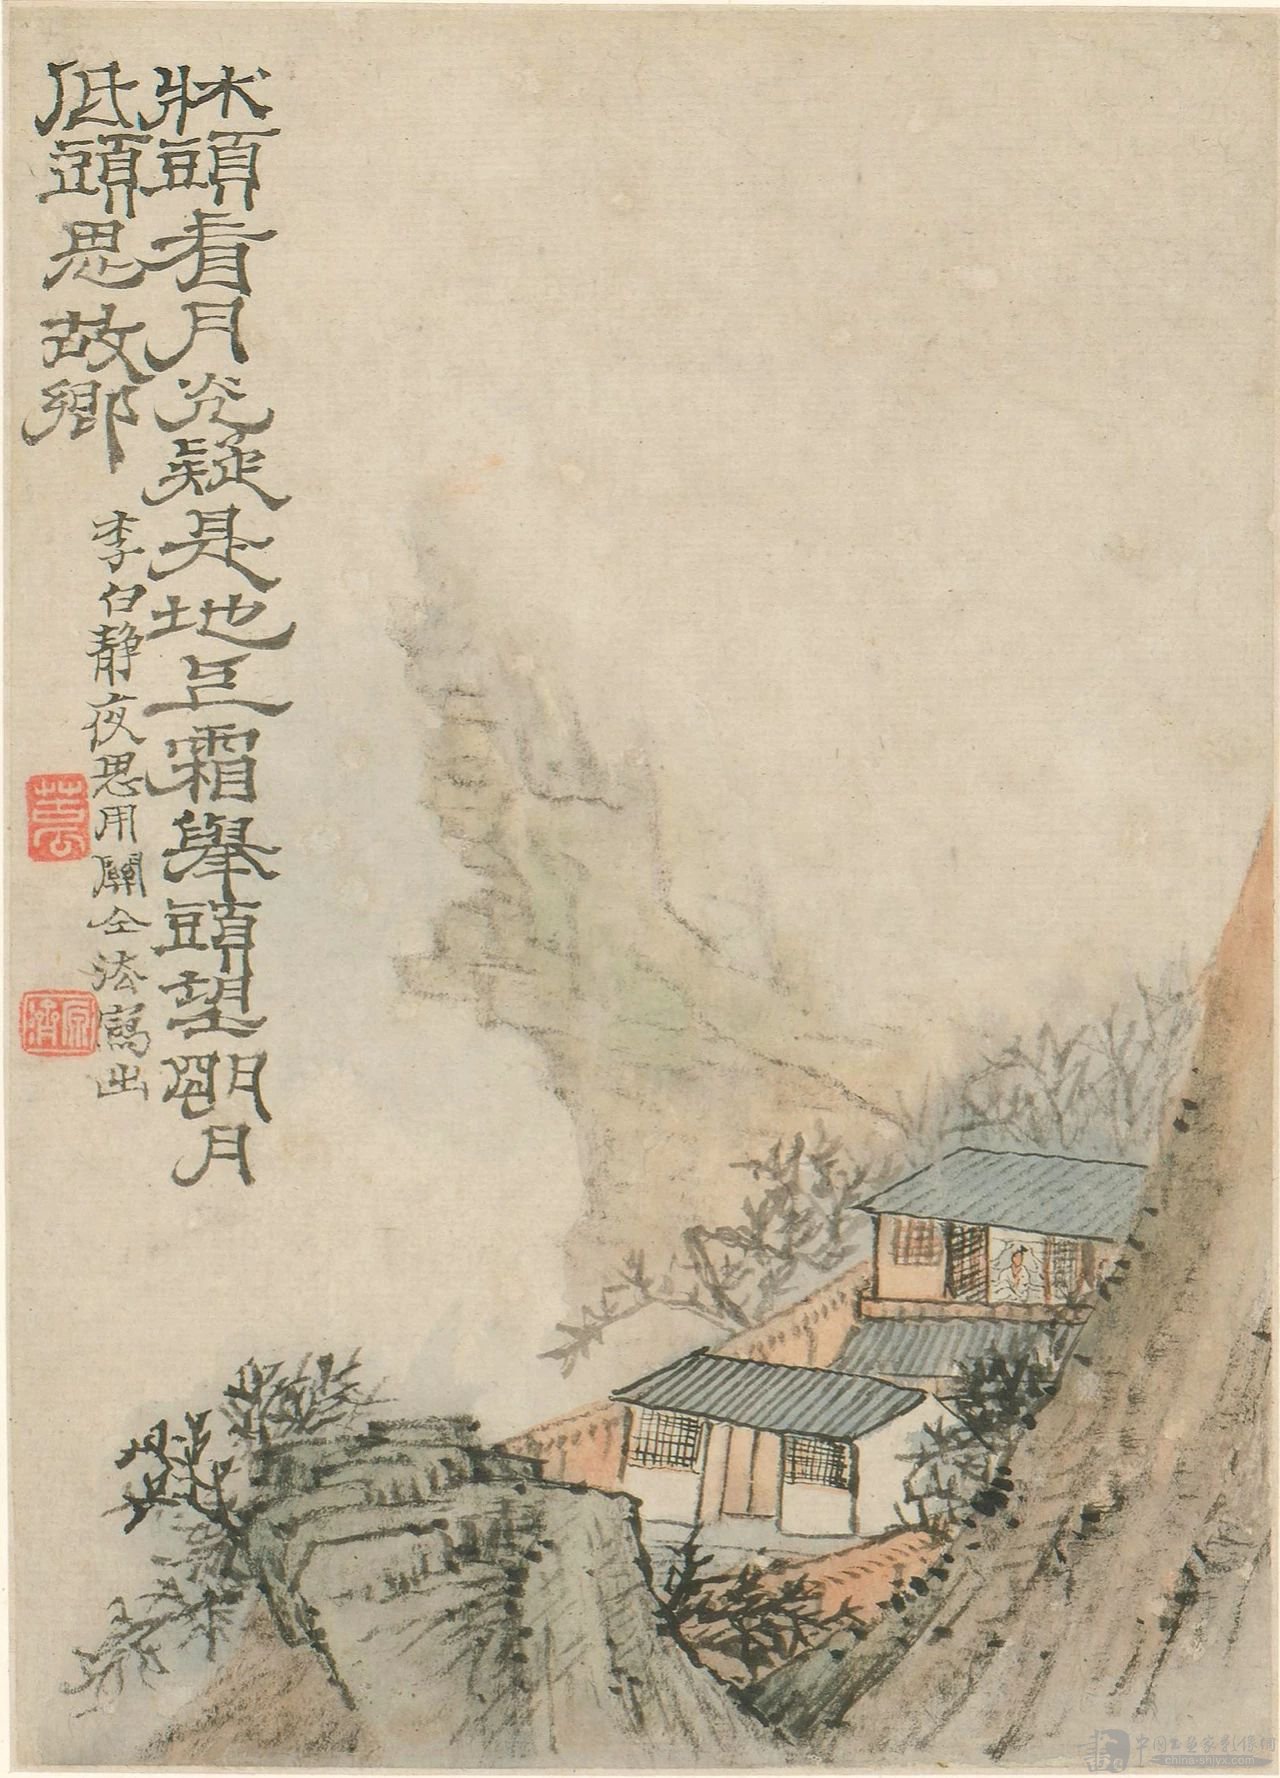 牀頭看月光疑是地上霜舉頭望明月
低頭思故鄉
李白靜夜思用關仝法寫出
苦瓜
原濟
中国书画家影像网
china-shiyx.com